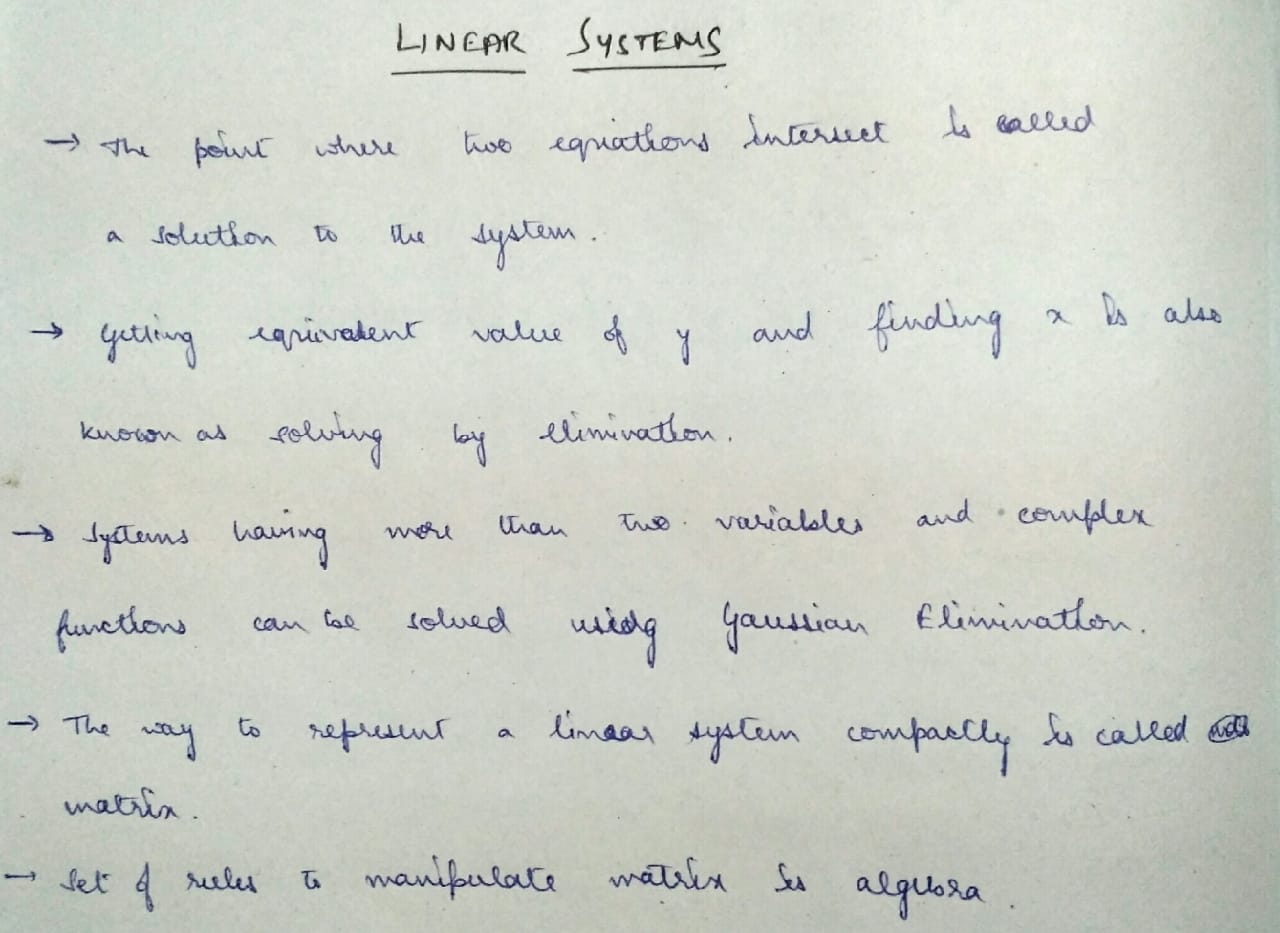 LINEAR SYSTEMS
→ The point where two equations intersect is called
a solution to the system.
→ Getting equivalent value of y and finding x is also
known as solving by elimination.
→ Systems having more than two variables and complex
functions can be solved using Gaussian Elimination.
→ The way to represent a linear system compactly is called
matrix.
→ Set of rules to manipulate matrix is algebra.